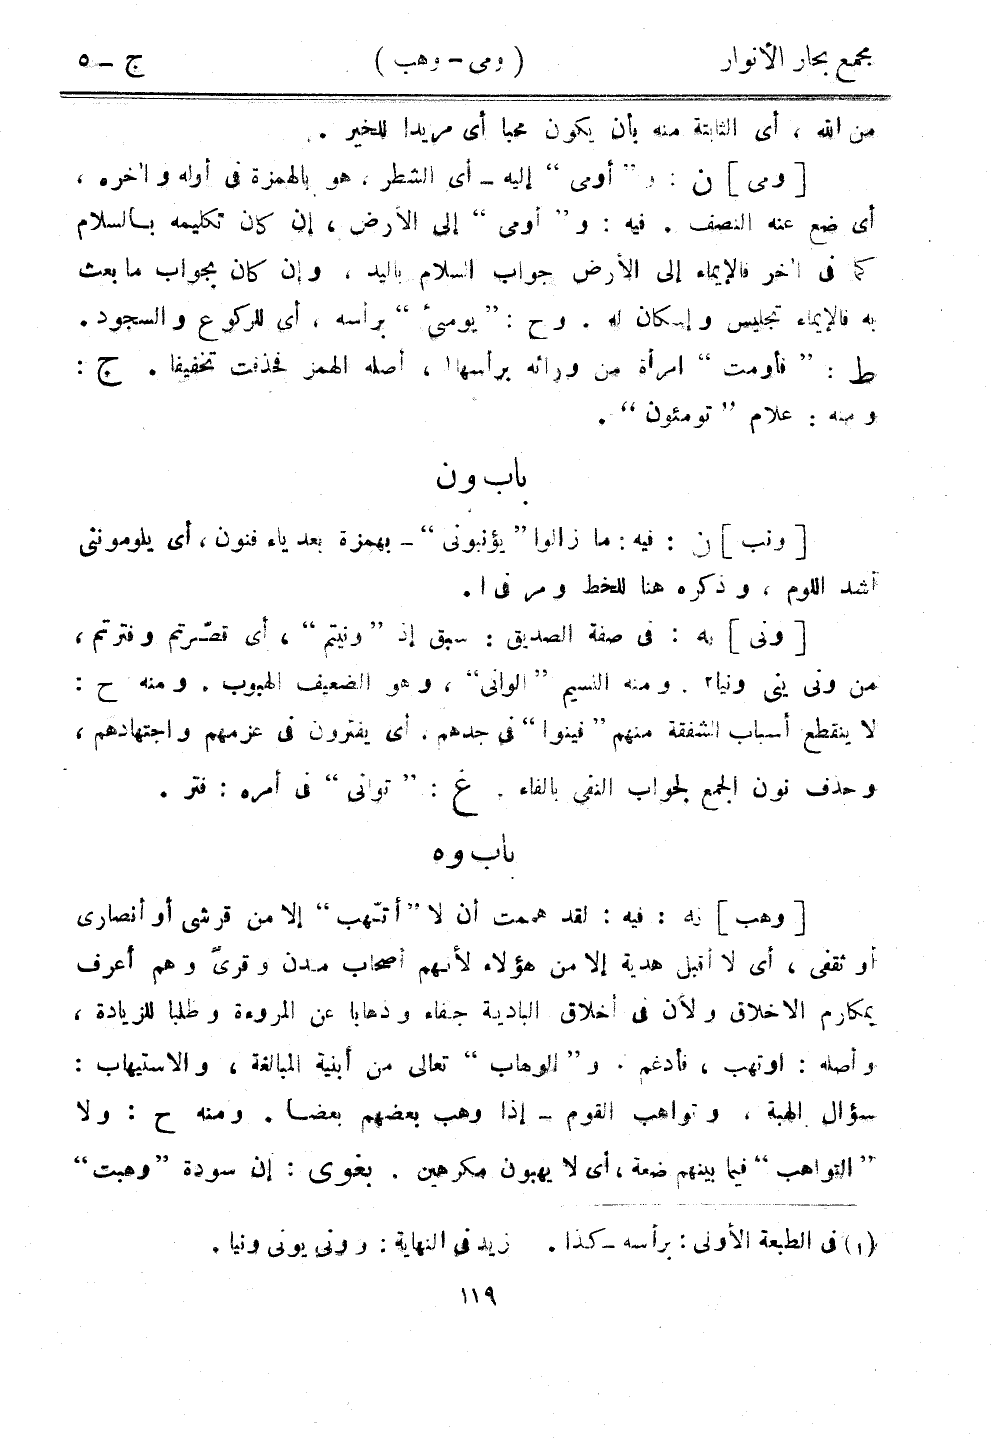 مجمع بحار الأنوار ( ومى - وهب ) ج - ٥
من الله ، أى الثابتة منه بأن يكون محبا أى مريدا للخير .
[ ومى ] ن : و ” أومى “ إليه - أى الشطر ، هو بالهمزة فى أوله و اٰخره ،
أى ضع عنه النصف . فيه : و ” أومى “ إلى الأرض ، إن كان تكليمه بالسلام
كما فى اٰخر فالإيماء إلى الأرض جواب السلام باليد ، و إن كان بجواب ما بعث
به فالإيماء تجليس و إسكان له . و ح : ” يومئ “ برأسه ، أى للركوع و السجود .
ط : ” فأومت “ امرأة من ورائه برأسها١ ، أصله الهمز فحذفت تخفيفا . ج :
و منه : علام ” تومئون “ .
باب ون
[ ونب ] ن : فيه : ما زالوا ” يؤنبونى “ - بهمزة بعد ياء فنون ، أى يلوموننى
أشد اللوم ، و ذكره هنا للخط و مر فى ا .
[ ونى ] نه : فى صفة الصديق : سبق إذ ” ونيتم “ ، أى قصّرتم و فترتم ،
من ونى ينى ونيا٢ . و منه النسيم ” الوانى “ ، و هو الضعيف الهبوب . و منه ح :
لا ينقطع أسباب الشفقة منهم ” فينوا “ فى جدهم . أى يفترون فى عزمهم و اجتهادهم ،
و حذف نون الجمع لجواب النفى بالفاء . غ : ” توانى “ فى أمره : فتر .
باب وه
[ وهب ] نه : فيه : لقد هممت أن لا ” أتّهب “ إلا من قرشى أو أنصارى
أو ثقفى ، أى لا أقبل هدية إلا من هؤلاء لأنهم أصحاب مدن و قرىً و هم أعرف
بمكارم الاخلاق و لأن فى أخلاق البادية جفاء و ذهابا عن المروءة و طلبا للزيادة ،
و أصله : اوتهب ، فأدغم . و ” الوهاب “ تعالى من أبنية المبالغة ، و الاستيهاب :
سؤال الهبة ، و تواهب القوم - إذا وهب بعضهم بعضا . و منه ح : و لا
” التواهب “ فيما بينهم ضعة ، أى لا يهبون مكرهين . بغوى : إن سودة ” وهبت “
(١) فى الطبعة الأولى : برأسه - كذا . زيد فى النهاية : و ونى يونى ونيا .
١١٩